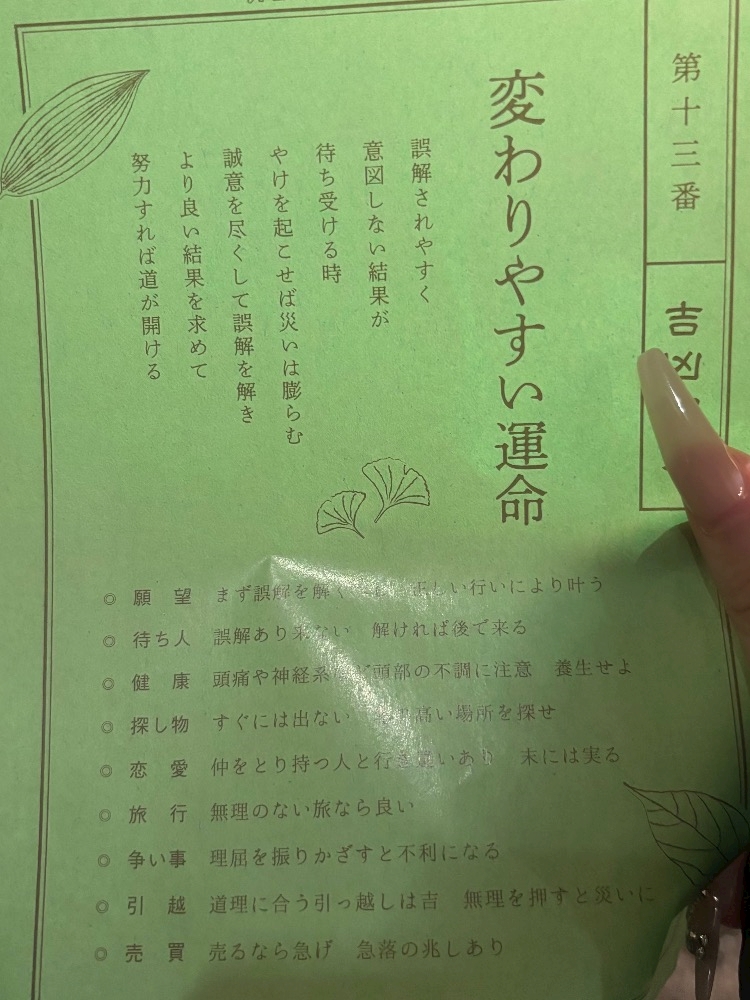 第十三番
吉
変わりやすい運命
誤解されやすく
意図しない結果が
待ち受ける時
やけを起こせば災いは膨らむ
誠意を尽くして誤解を解き
より良い結果を求めて
努力すれば道が開ける
◎ 願 望 まず誤解を解く 正しい行いにより叶う
◎ 待ち人 誤解あり来ない 解ければ後で来る
◎ 健 康 頭痛や神経系など頭部の不調に注意 養生せよ
◎ 探し物 すぐには出ない 高い場所を探せ
◎ 恋 愛 仲をとり持つ人と行き違いあり 末には実る
◎ 旅 行 無理のない旅なら良い
◎ 争い事 理屈を振りかざすと不利になる
◎ 引 越 道理に合う引っ越しは吉 無理を押すと災いに
◎ 売 買 売るなら急げ 急落の兆しあり